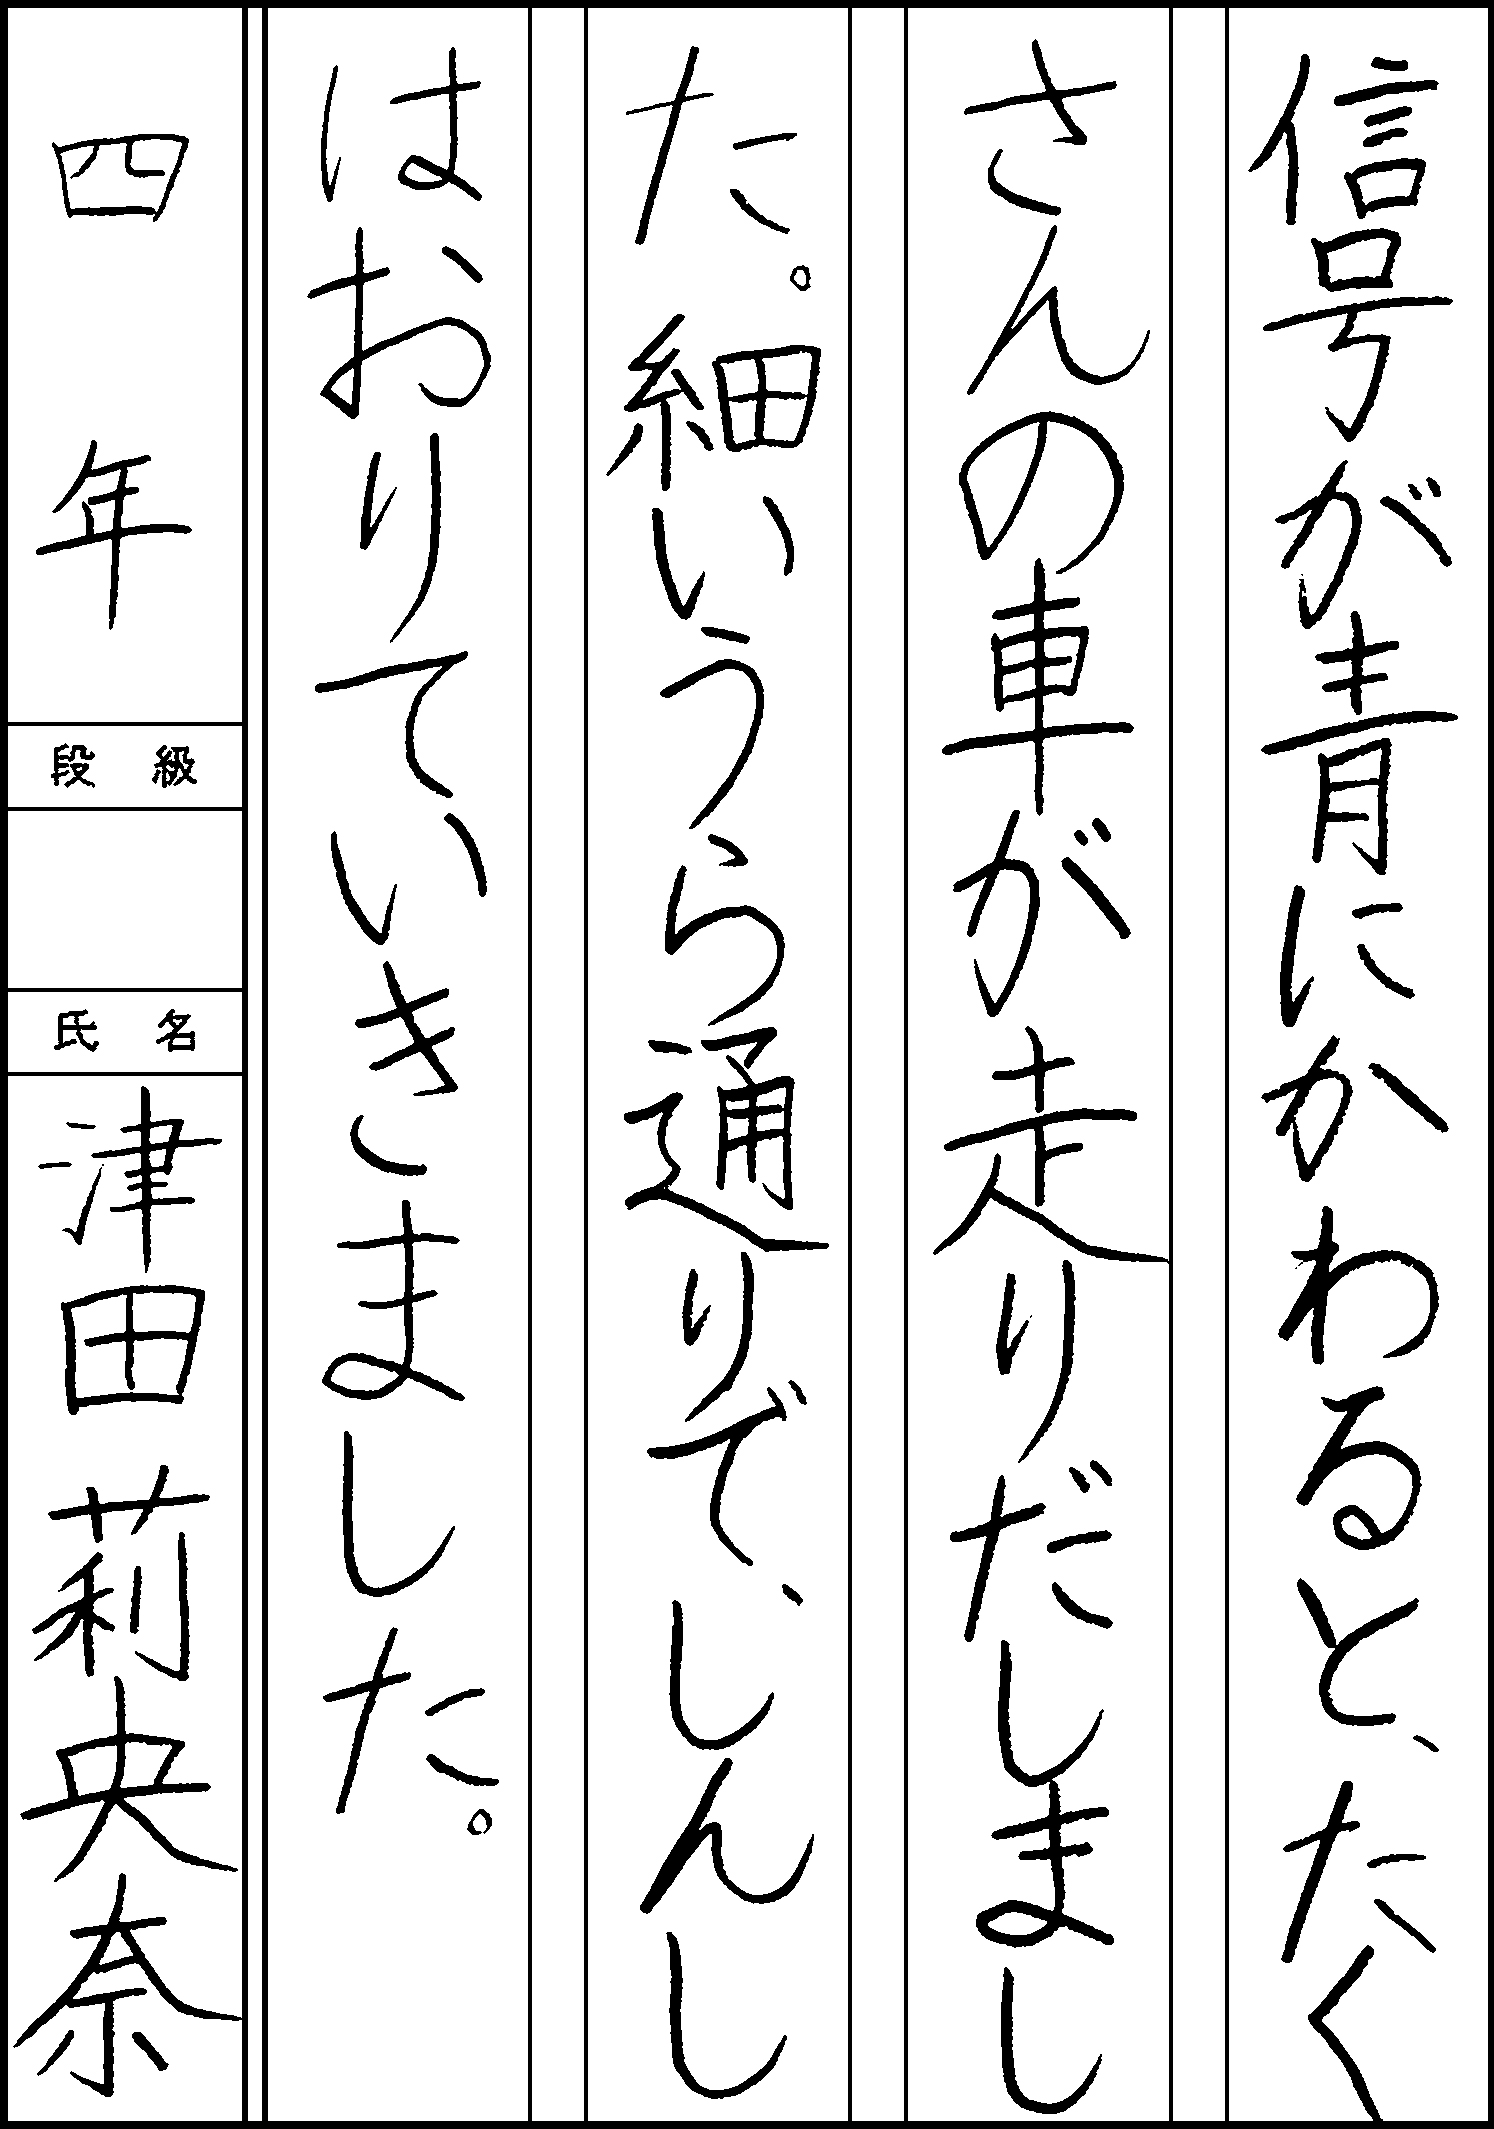 信号が青にかわると、たく
さんの車が走りだしまし
た。細いうら通りで、しんし
はおりていきました。
四年
段級
氏名
津田莉央奈